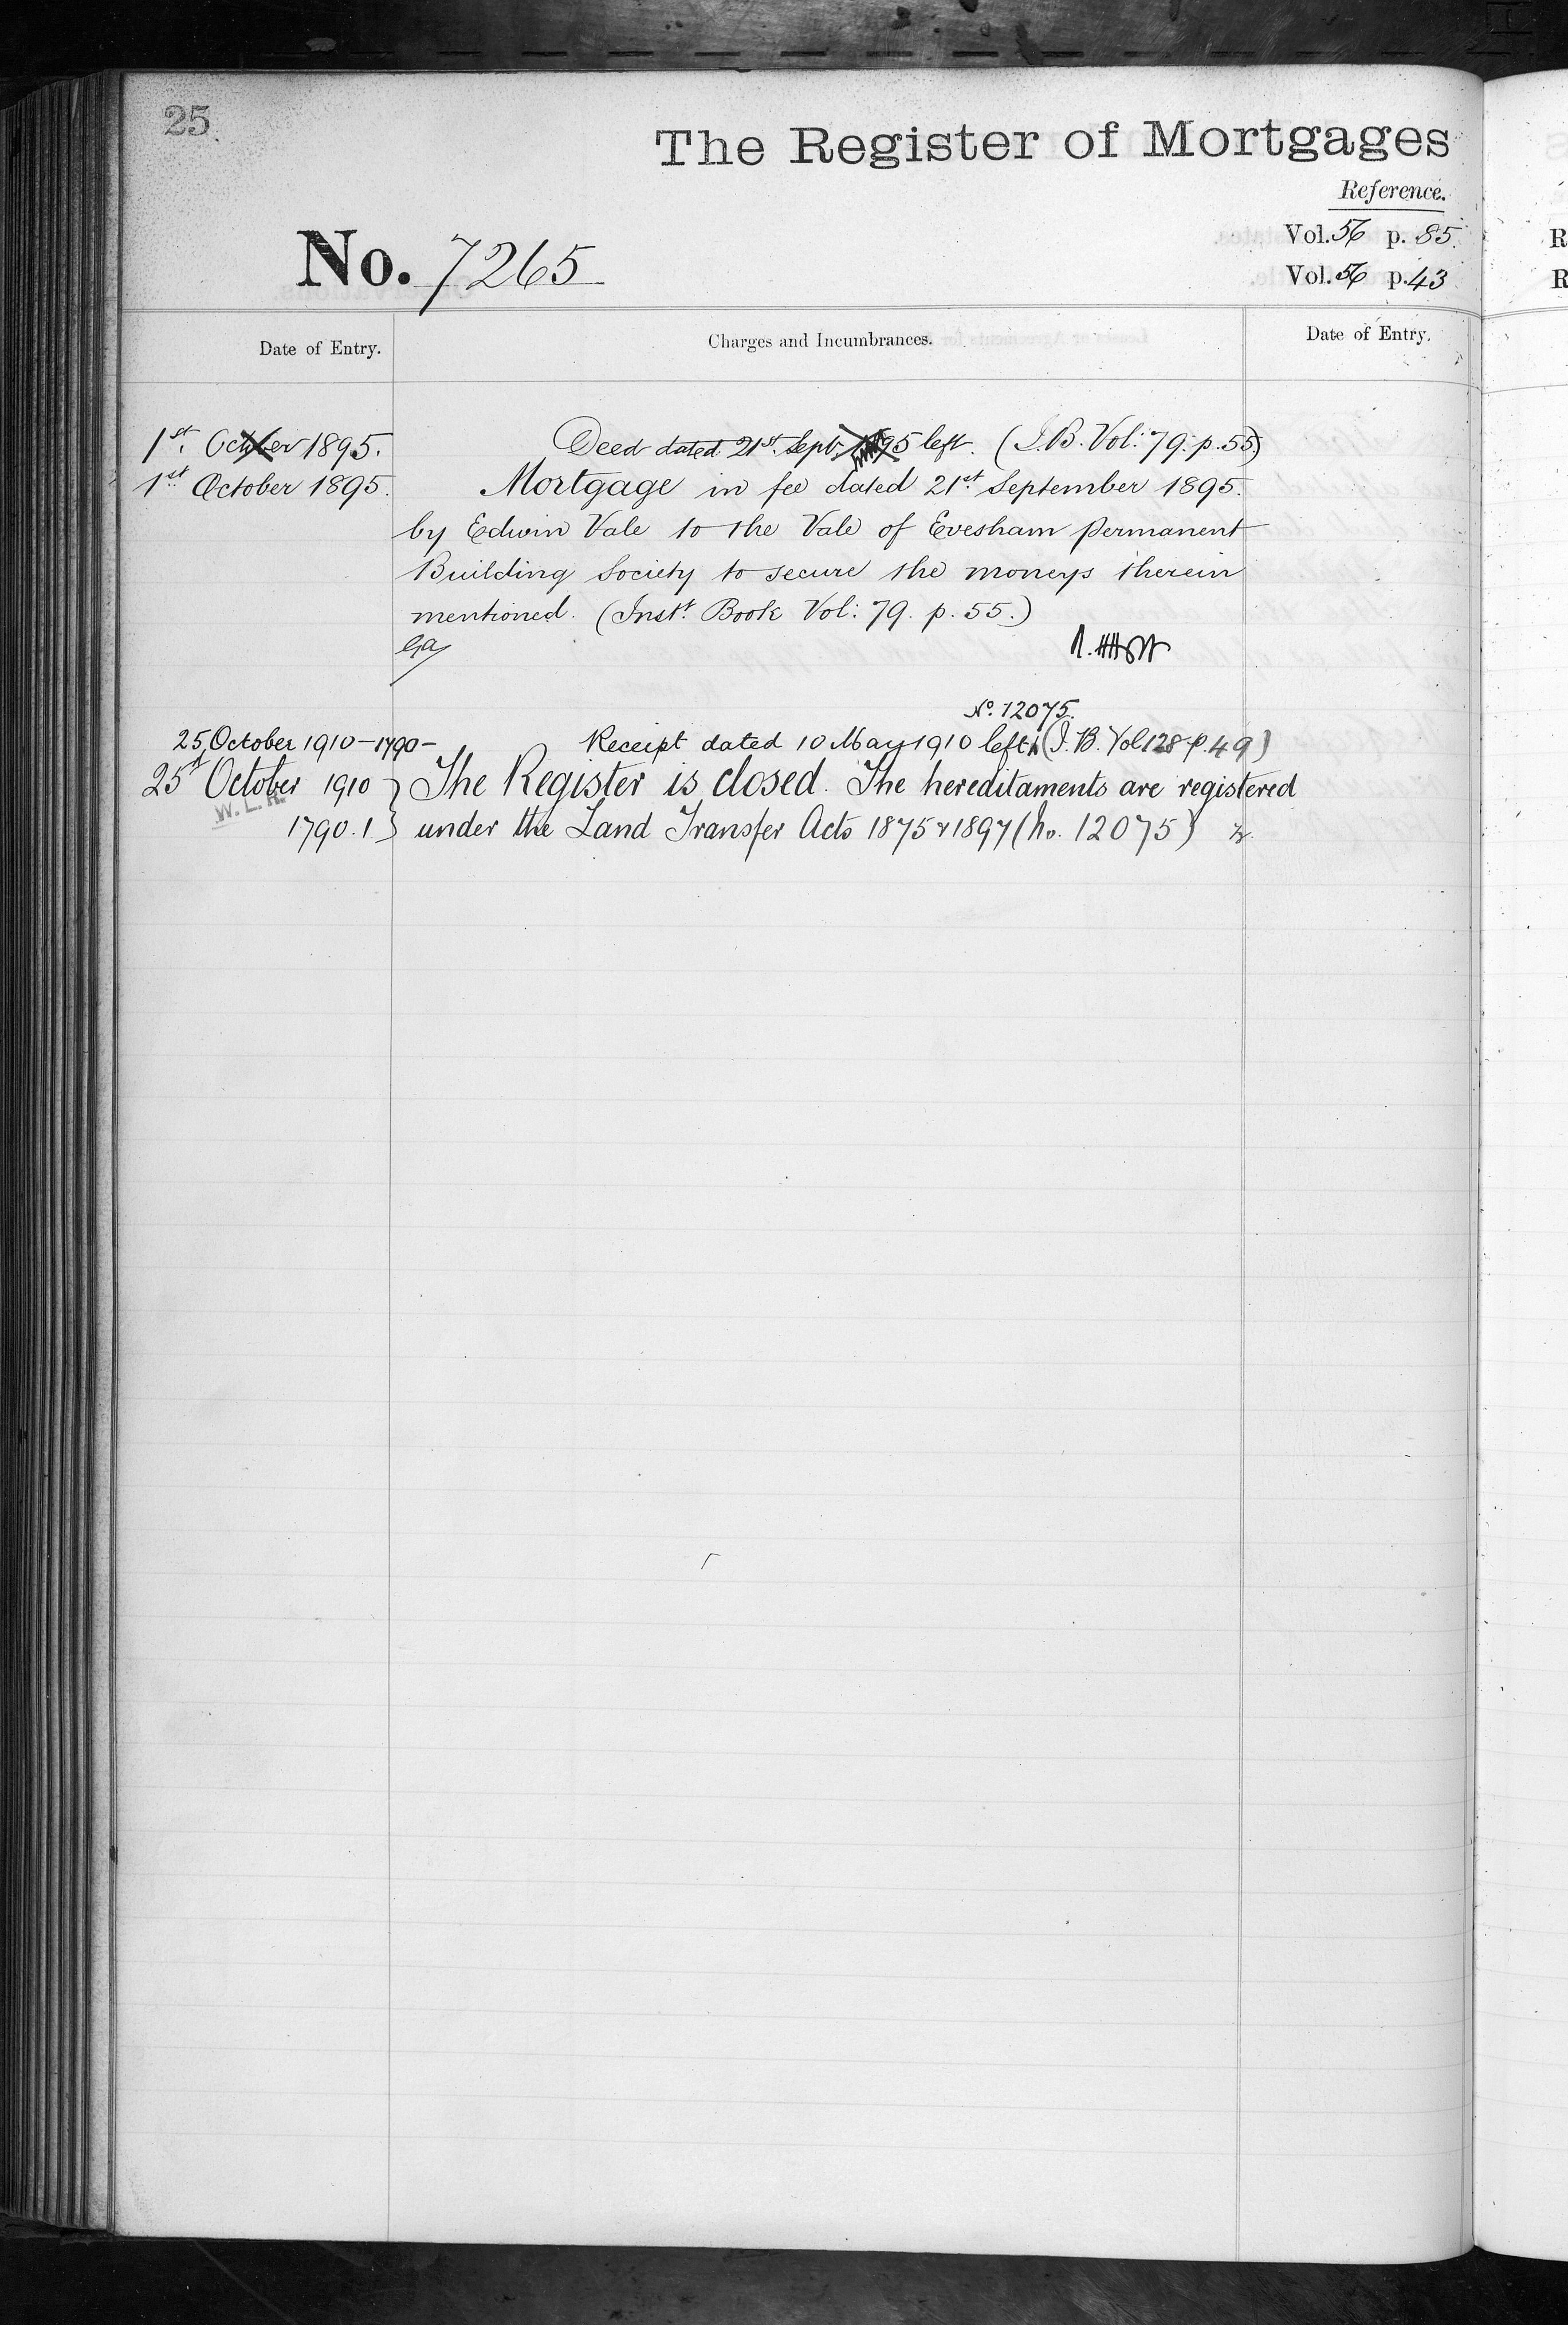 25
The Register of Mortgages
Reference.
No. 7265
Vol. 56 p. 85.
Vol. 56 p. 43
Date of Entry.
Charges and Incumbrances.
Date of Entry.
1st. October 1895.
Deed dated 21st. Sept. 1895 left. (I.B. Vol: 79. p. 55)
1st October 1895.
Mortgage in fee dated 21st September 1895.
by Edwin Vale to the Vale of Evesham Permanent
Building Society to secure the moneys therein
mentioned. (Inst. Book Vol: 79. p. 55.)
No. 12075.
25 October 1910 - 1790 -
Receipt dated 10 May 1910 left (I.B. Vol 128 p. 49)
25th October 1910
The Register is closed. The hereditaments are registered
W.L.R.
1790.1
under the Land Transfer Acts 1875 & 1897 (No. 12075)
R
R